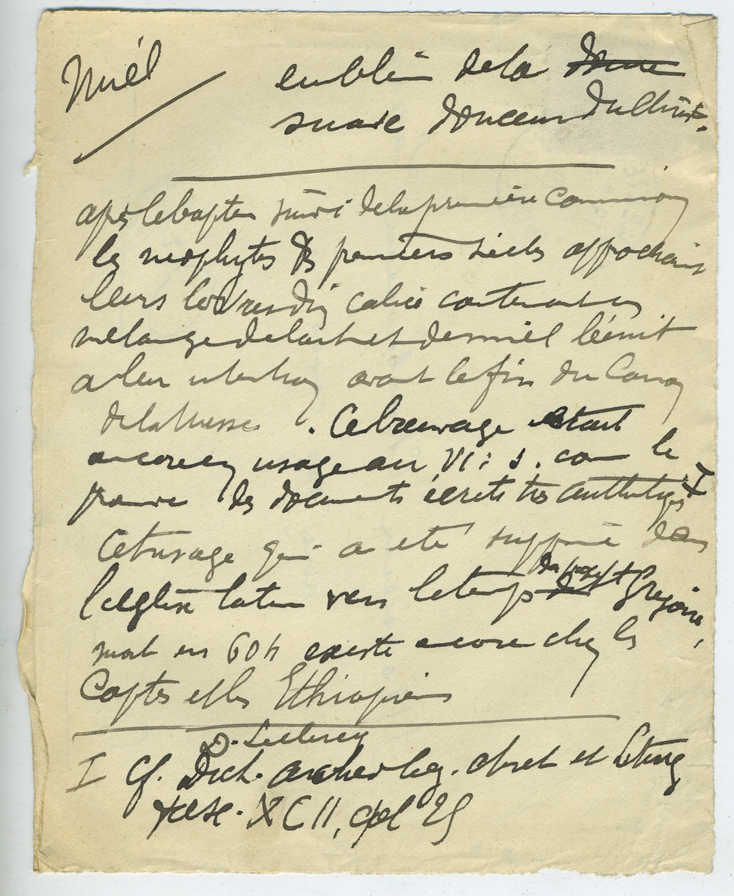 Miel
emblème de la
suave douceur du Christ.
après le baptême suivi de la première Communion
les néophytes des premiers siècles approchaient
leurs lèvres d'un calice contenant un
mélange de lait et de miel bénit
à leur intention avant la fin du Canon
de la Messe. Ce breuvage était
encore en usage au VIe s. com le
prouve des documents écrits très authentiques I
Cet usage qui a été supprimé dans
l'église latine vers le temps du pape St Grégoire,
mort en 604 existe encore chez les
Coptes et les Ethiopiens
D. Leclercq
I Cf. Dict. archeolog. chret et Liturg
fasc. XCII, col